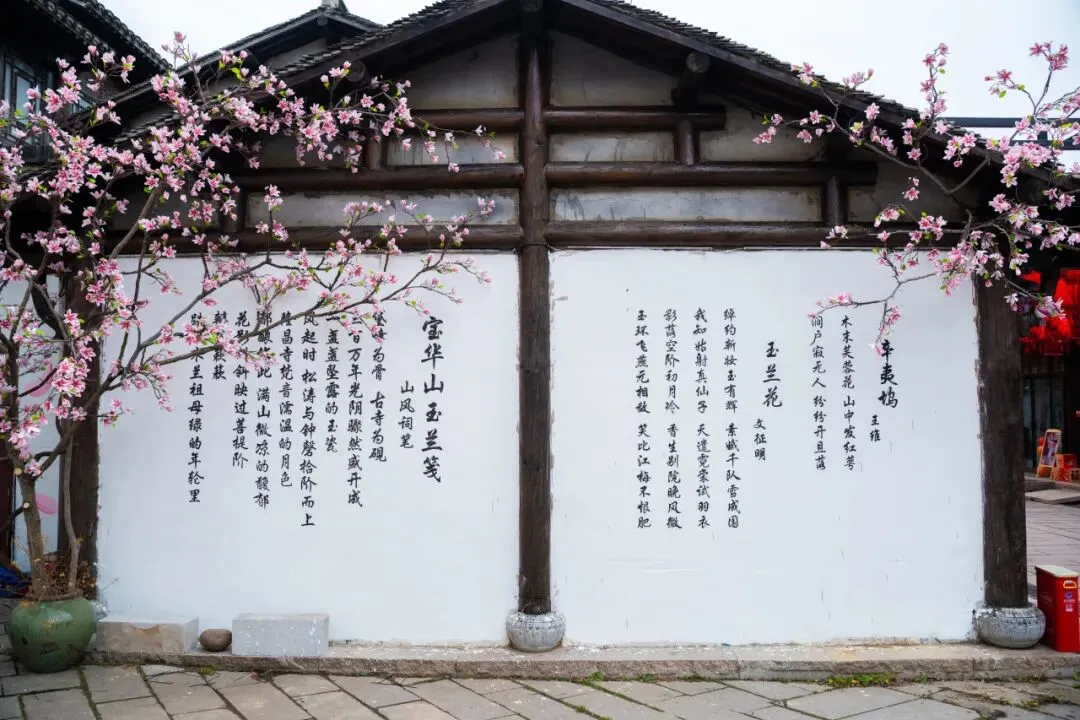 辛夷坞
王维
木末芙蓉花 山中发红萼
涧户寂无人 纷纷开且落
玉兰花
文征明
绰约新妆玉有辉 素娥千队雪成围
我知姑射真仙子 天遣霓裳试羽衣
影落空阶初月冷 香生别院晚风微
玉环飞燕元相敌 笑比江梅不恨肥
宝华山玉兰笺
山风词笔
为骨 古寺为砚
百万年光阴骤然盛开成
盏盏坠露的玉瓷
风起时 松涛与钟磬拾阶而上
隆昌寺梵音濡湿的月色
此 满山微凉的馥郁
花 斜映过菩提阶
簌簌
木兰祖母绿的年轮里